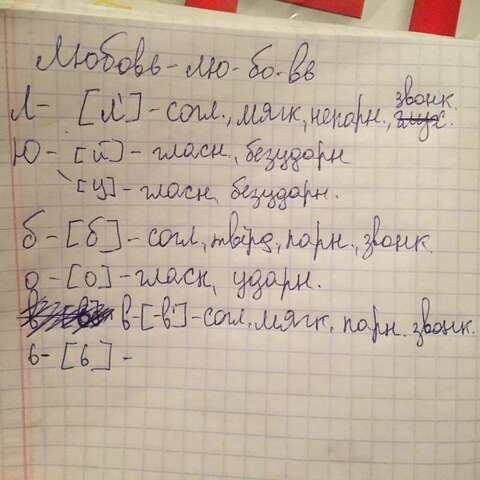 Любовь - лю-бо-вь
Л - [л'] - согл., мягк, непарн., звонк.
Ю - [й] - гласн, безударн
[у] - гласн, безударн.
б - [б] - согл, твёрд, парн., звонк.
о - [о] - гласн, ударн.
в - [в'] - согл, мягк, парн. звонк.
ь - [ь] -